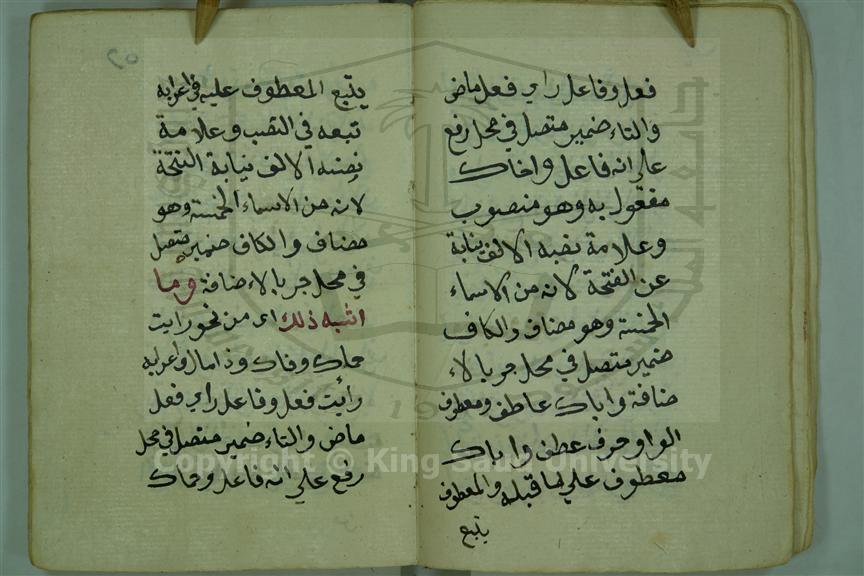 فعل وفاعل راي فعل ماض
والتاء ضمير متصل في محل رفع
علي انه فاعل واخاك
مفعول به وهو منصوب
وعلامة نصبه الالف نيابة
عن الفتحة لانه من الاسماء
الخمسة وهو مضاف والكاف
ضمير متصل في محل جر بالا
ضافة واباك عاطف ومعطوف
الواو حرف عطف واباك
معطوف علي ما قبله والمعطوف
يتبع
يتبع المعطوف عليه في اعرابه
تبعه في النصب وعلامة
نصبه الالف نيابة الفتحة
لانه من الاسماء الخمسة وهو
مضاف والكاف ضمير متصل
في محل جر بالاضافة وما
اشبه ذلك اي من نحو رايت
حماك وفاك وذا مال واعرابه
رأيت فعل وفاعل راي فعل
ماض والتاء ضمير متصل في محل
رفع علي انه فاعل وحماك
Copyright © King Saud University